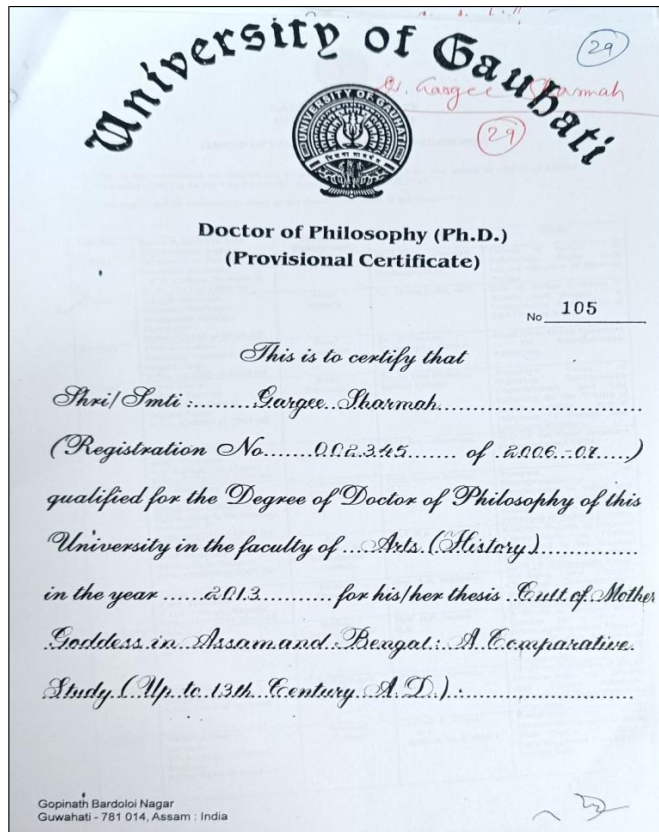 University of Gauhati
29
Dr. Gargee Sharmah
29
UNIVERSITY OF GAUHATI
Doctor of Philosophy (Ph.D.)
(Provisional Certificate)
No 105
This is to certify that
Shri/Smti :........Gargee Sharmah.................................
(Registration No.......002345....... of .2006-07.....)
qualified for the Degree of Doctor of Philosophy of this
University in the faculty of ...Arts (History)................
in the year ......2013........... for his/her thesis .Cult of Mother
Goddess in Assam and Bengal : A Comparative
Study (Up to 13th Century A.D.).............................
Gopinath Bardoloi Nagar
Guwahati - 781 014, Assam : India